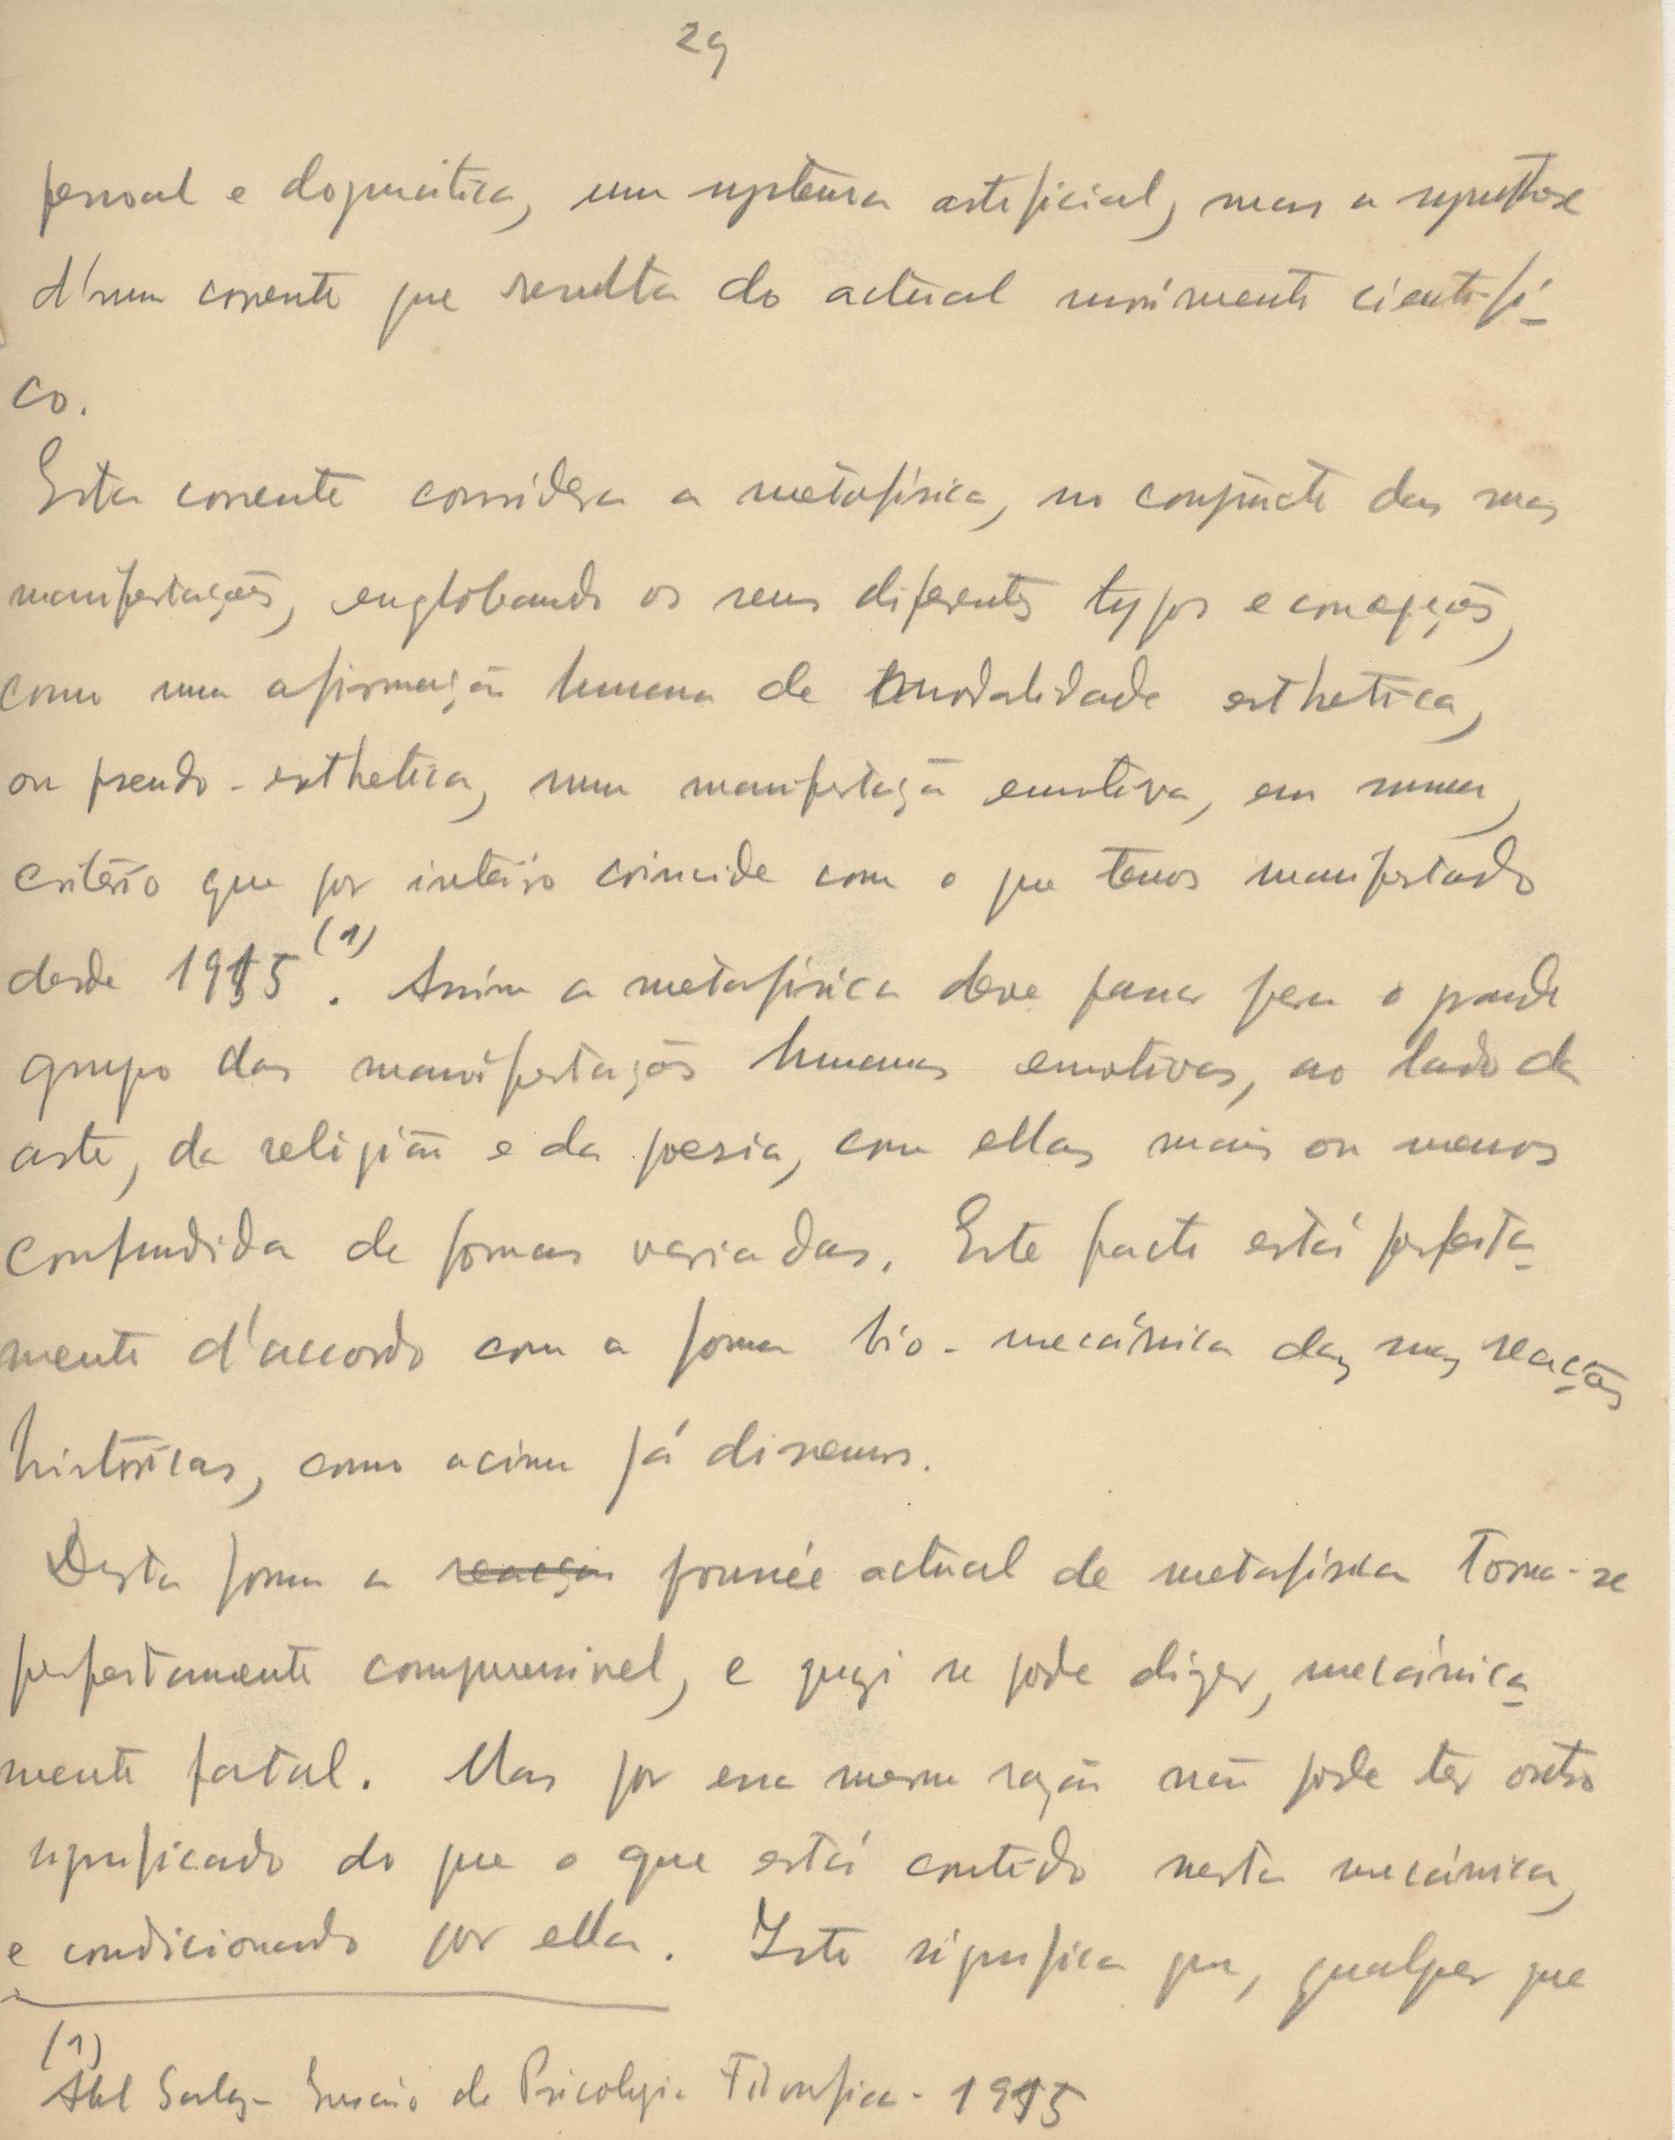 29
pessoal e dogmatica, um systema artificial, mas a synthese
d'uma corrente que resulta do actual movimento cientifi-
co.
Esta corrente considera a metafisica, no conjuncto das suas
manifestações, englobando os seus diferentes typos e concepções,
como uma afirmação humana de modalidade esthetica,
ou pseudo-esthetica, uma manifestação emotiva, em summa,
criterio que por inteiro coincide com o que temos manifestado
desde 1915 (1). Assim a metafisica deve passar para o grande
grupo das manifestações humanas emotivas, ao lado da
arte, da religião e da poesia, com ellas mais ou menos
confundida de formas variadas. Este facto está perfeita-
mente d'accordo com a forma bio-mecánica das suas reacções
históricas, como acima já dissemos.
Desta forma a reacção poussée actual de metafisica torna-se
perfeitamente comprensivel, e quazi se pode dizer, mecánica-
mente fatal. Mas por essa mesma razão não pode ter outro
significado do que o que está contido nesta mecánica,
e condicionado por ella. Isto significa que, qualquer que
(1)
Abel Salazar - Ensaio de Psicologia Filosofica - 1915